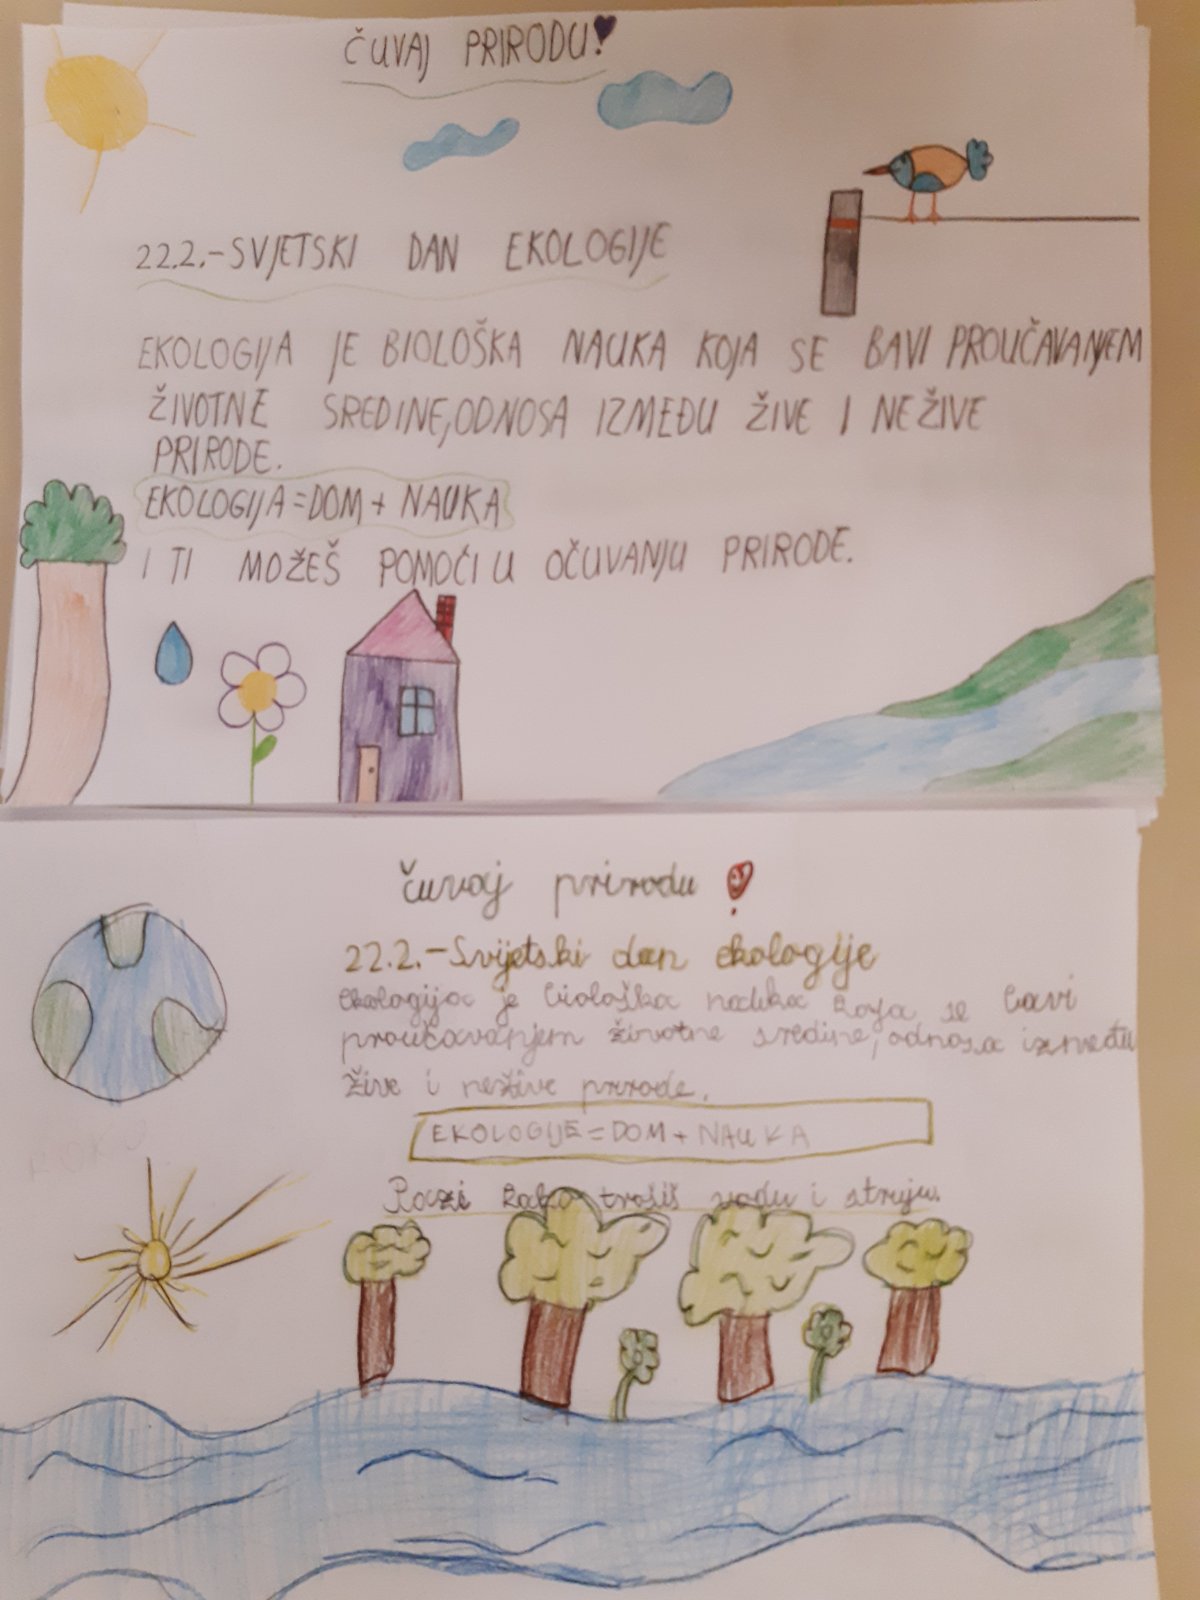 ČUVAJ PRIRODU!
22.2.-SVJETSKI DAN EKOLOGIJE
EKOLOGIJA JE BIOLOŠKA NAUKA KOJA SE BAVI PROUČAVANJEM
ŽIVOTNE SREDINE, ODNOSA IZMEĐU ŽIVE I NEŽIVE
PRIRODE.
EKOLOGIJA=DOM+ NAUKA
I TI MOŽEŠ POMOĆI U OČUVANJU PRIRODE.
čuvaj prirodu!
22.2.-Svijetski dan ekologije
ekologija je biološka nauka koja se bavi
proučavanjem životne sredine, odnosa između
žive i nežive prirode.
EKOLOGIJE=DOM+NAUKA
Pazi kako trošiš vodu i struju.